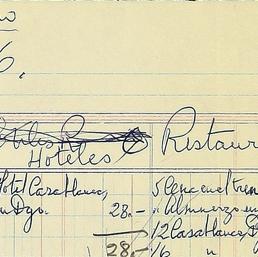 6.
Hoteles Restaur
Hotel Casablanca, 5 Cena en el tren
en Dgo. 28.— " Almuerzo en
12 Casablanca, D
28.— 16 "